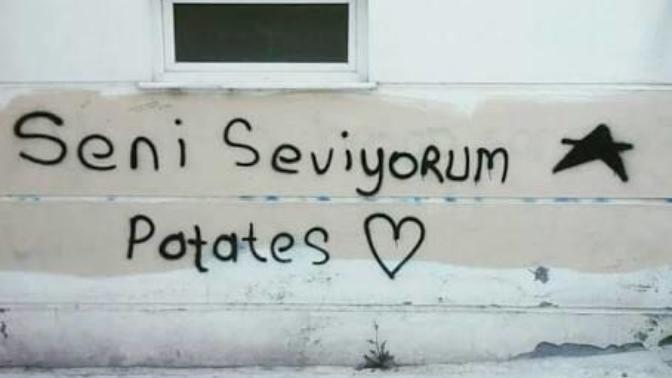 Seni SeviyoRUM
Patates